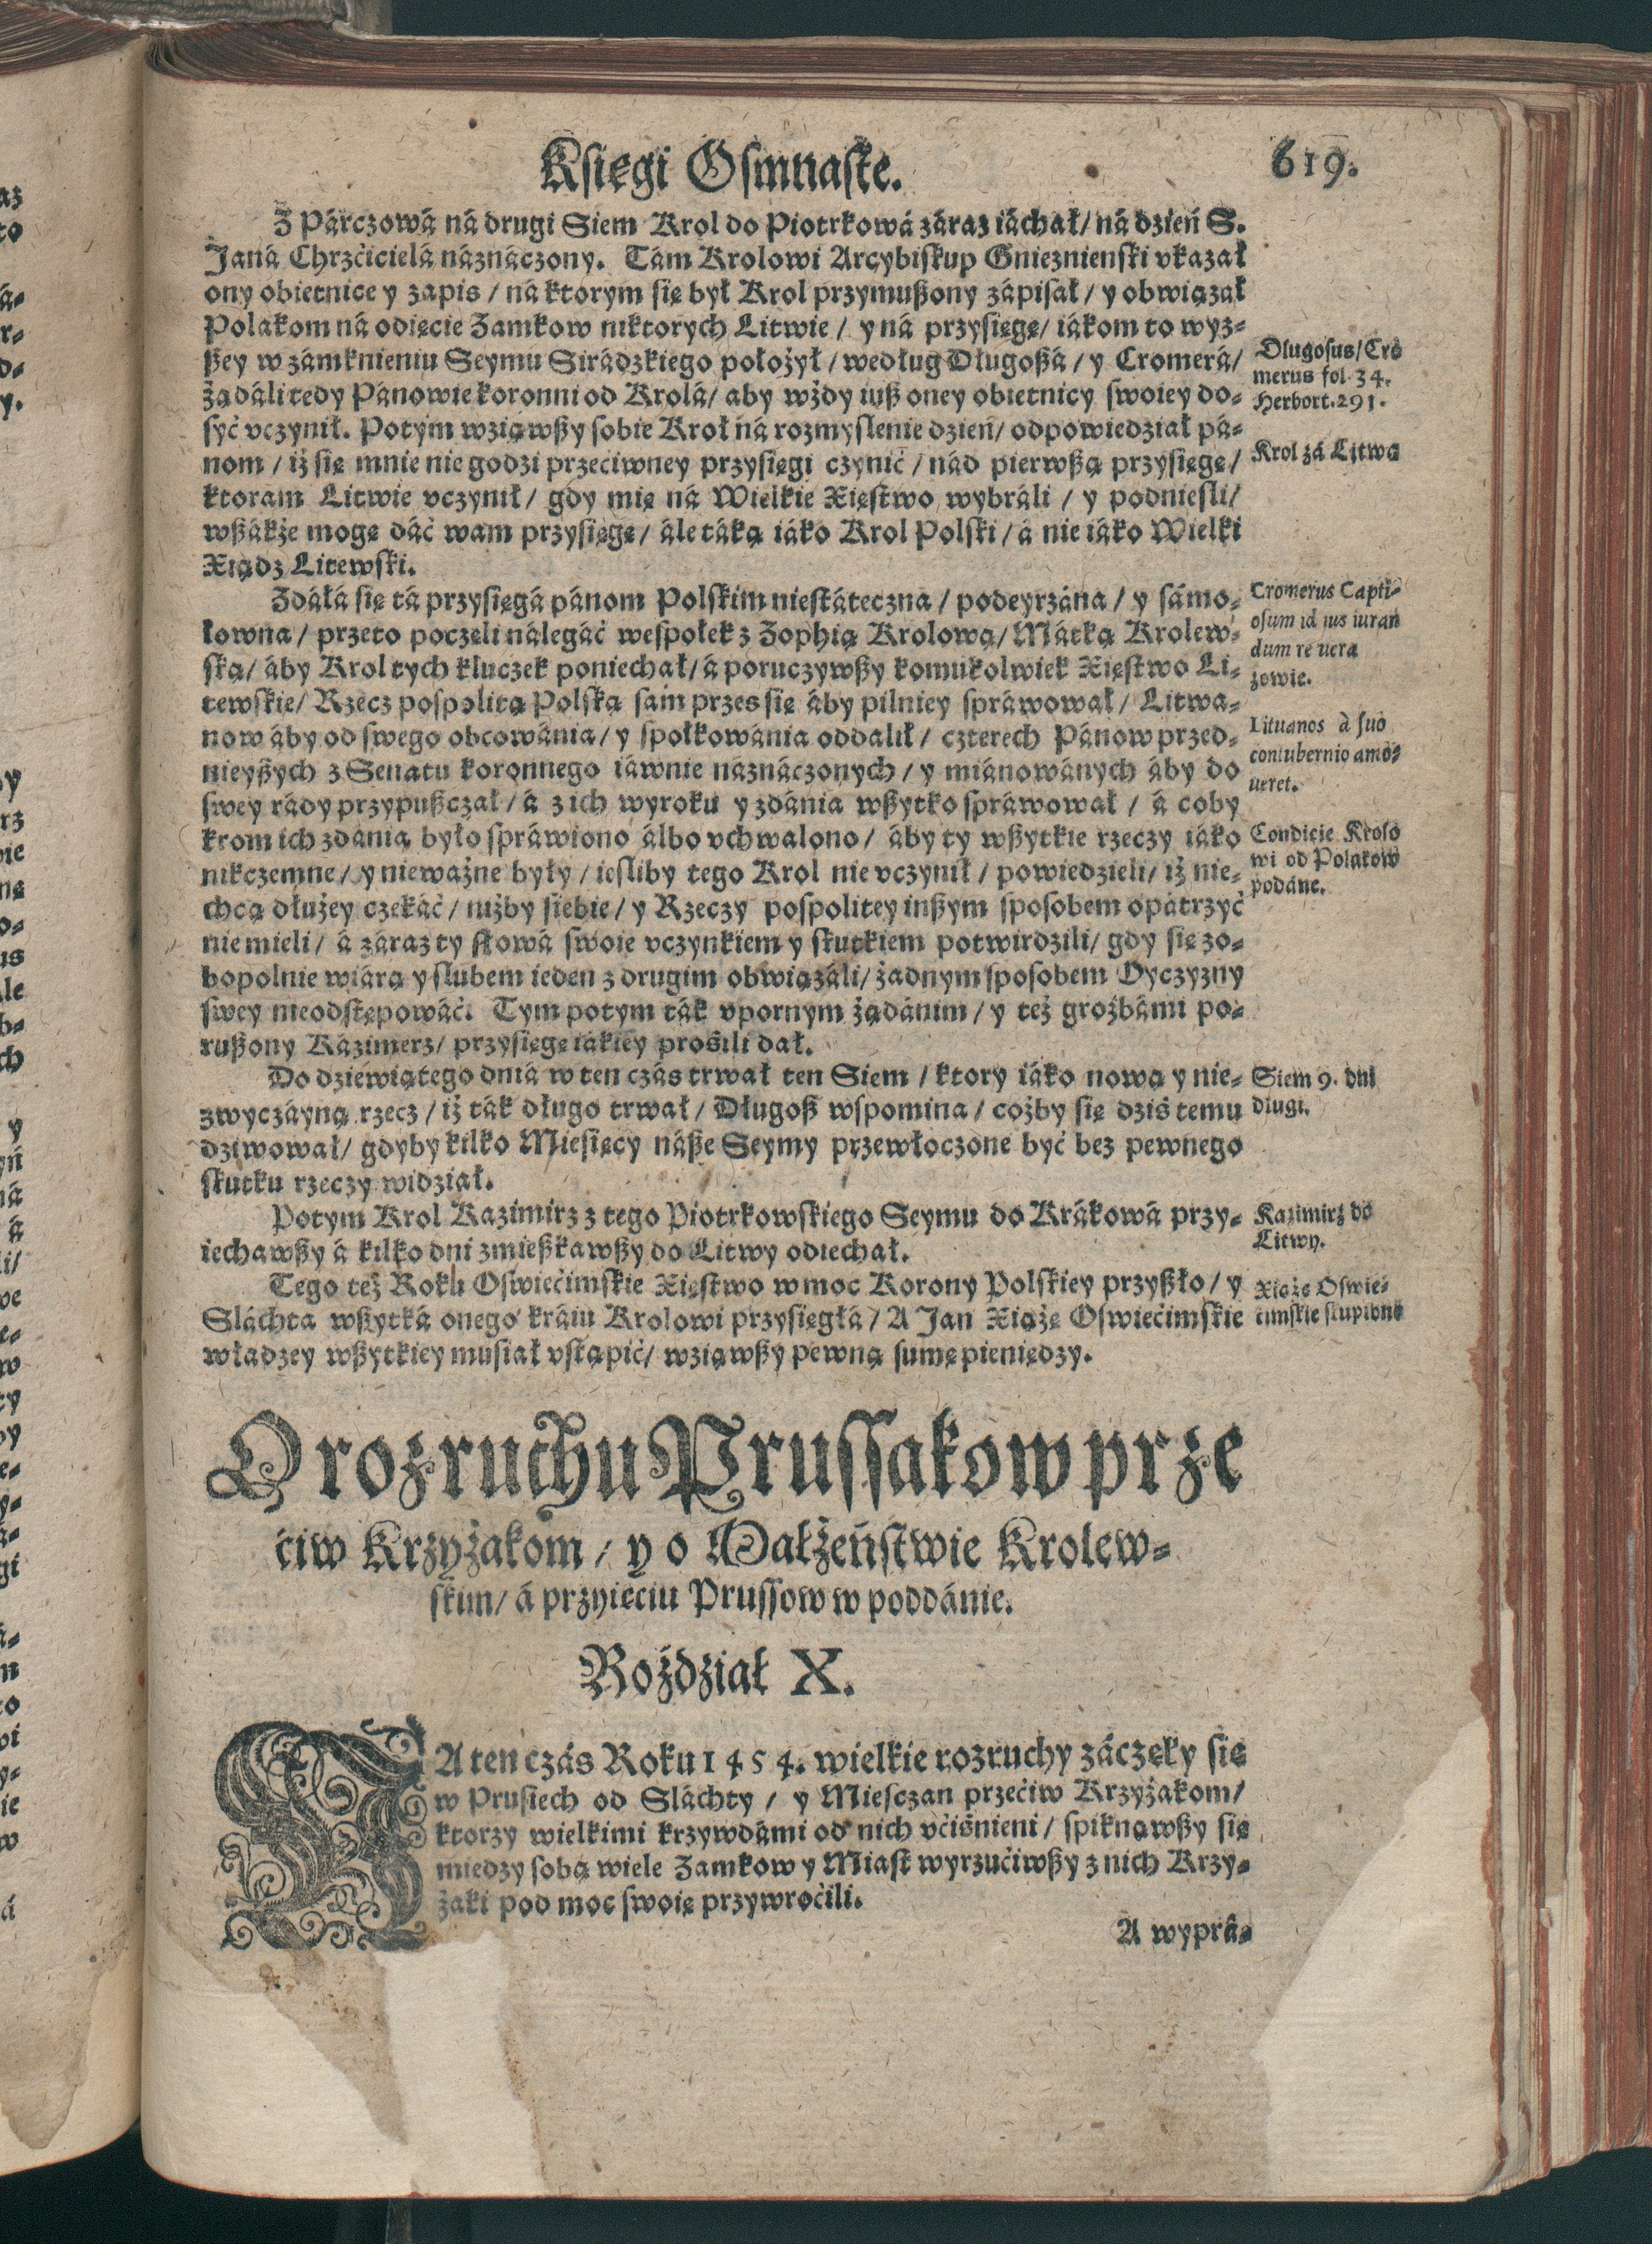 Księgi Osmnaste.
619.
Z Párczowá ná drugi Siem Krol do Piotrkowá záraz iáchał/ ná dzień S.
Janá Chrzćicielá náznáczony. Tám Krolowi Arcybiskup Gnieznienski vkazał
ony obietnice y zapis / ná ktorym się był Krol przymußony zápisał / y obwiązał
Polakom ná odięcie Zamkow niktorych Litwie / y ná przysięgę/ iákom to wyz-
ßey w zámknieniu Seymu Sirádzkiego położył / według Długoßá / y Cromerá/
Dlugosus/ Cro
merus fol 34.
Herbort. 291.
żądáli tedy Pánowie koronni od Krolá/ aby wżdy iuß oney obietnicy swoiey do-
syć vczynił. Potym wziąwßy sobie Krol ná rozmyslenie dzień/ odpowiedział pá-
nom / iż się mnie nie godzi przeciwney przysięgi czynić / nád pierwßą przysięgę/
Krol zá Litwą
ktoram Litwie vczynił/ gdy mię ná Wielkie Xięstwo wybráli / y podniesli/
wßákże mogę dáć wam przysięgę/ ále táką iáko Krol Polski / á nie iáko Wielki
Xiądz Litewski.
Zdáłá się tá przysięgá pánom Polskim niestáteczna / podeyrzána / y sámo-
łowna / przeto poczęli nálegáć wespołek z Zophią Krolową/ Mátką Krolew-
ską/ áby Krol tych kluczek poniechał/ á poruczywßy komukolwiek Xięstwo Li-
tewskie/ Rzecz pospolitą Polską sam przes się áby pilniey spráwował/ Litwa-
Cromerus Capti-
osum id ius iuran
dum re uera
zowie.
now áby od swego obcowánia/ y społkowánia oddalił/ czterech Pánow przed-
nieyßych z Senatu koronnego iáwnie náznáczonych / y miánowánych áby do
swey rády przypußczał / á z ich wyroku y zdánia wßytko spráwował / á coby
Lituanos à suo
contubernio amo-
ueret.
krom ich zdánia było spráwiono álbo vchwalono / áby ty wßytkie rzeczy iáko
nikczemne / y nieważne były / iesliby tego Krol nie vczynił / powiedzieli/ iż nie-
chcą dłużey czekáć / niżby siebie / y Rzeczy pospolitey inßym sposobem opátrzyć
Condicie Krolo
wi od Polakow
podáne.
nie mieli / á záraz ty słowá swoie vczynkiem y skutkiem potwirdzili/ gdy się zo-
bopolnie wiárą y slubem ieden z drugim obwiązáli/ żadnym sposobem Oyczyzny
swey nieodstępowáć. Tym potym ták vpornym żądánim / y też groźbámi po-
rußony Kázimerz/ przysięgę iákiey prosili dał.
Do dziewiątego dniá w ten czás trwał ten Siem / ktory iáko nową y nie-
zwyczáyną rzecz / iż ták długo trwał / Długoß wspomina / coźby się dziś temu
Siem 9. dni
dlugi.
dziwował/ gdyby kilko Miesięcy náße Seymy przewłoczone być bez pewnego
skutku rzeczy widział.
Potym Krol Kazimirz z tego Piotrkowskiego Seymu do Krákowá przy-
iechawßy á kilko dni zmießkawßy do Litwy odiechał.
Kazimirz do
Litwy.
Tego też Roku Oswiećimskie Xięstwo w moc Korony Polskiey przyßło / y
Sláchta wßytká onego kráiu Krolowi przysięgłá / A Jan Xiąże Oswiećimskie
władzey wßytkiey musiał vstąpić/ wziąwßy pewną sumę pieniędzy.
Xiąże Oswie-
cimskie skupiono
O rozruchu Prussakow prze
ciw Krzyżakom / y o Małżeństwie Krolew-
skim/ á przyięciu Prussow w poddánie.
Roździał X.
NA ten czás Roku 1454. wielkie rozruchy záczęły się
w Prusiech od Sláchty / y Miesczan przećiw Krzyżakom/
ktorzy wielkimi krzywdámi od nich vćiśnieni / spiknąwßy się
miedzy sobą wiele Zamkow y Miast wyrzućiwßy z nich Krzy-
żaki pod moc swoię przywroćili.
A wyprá-